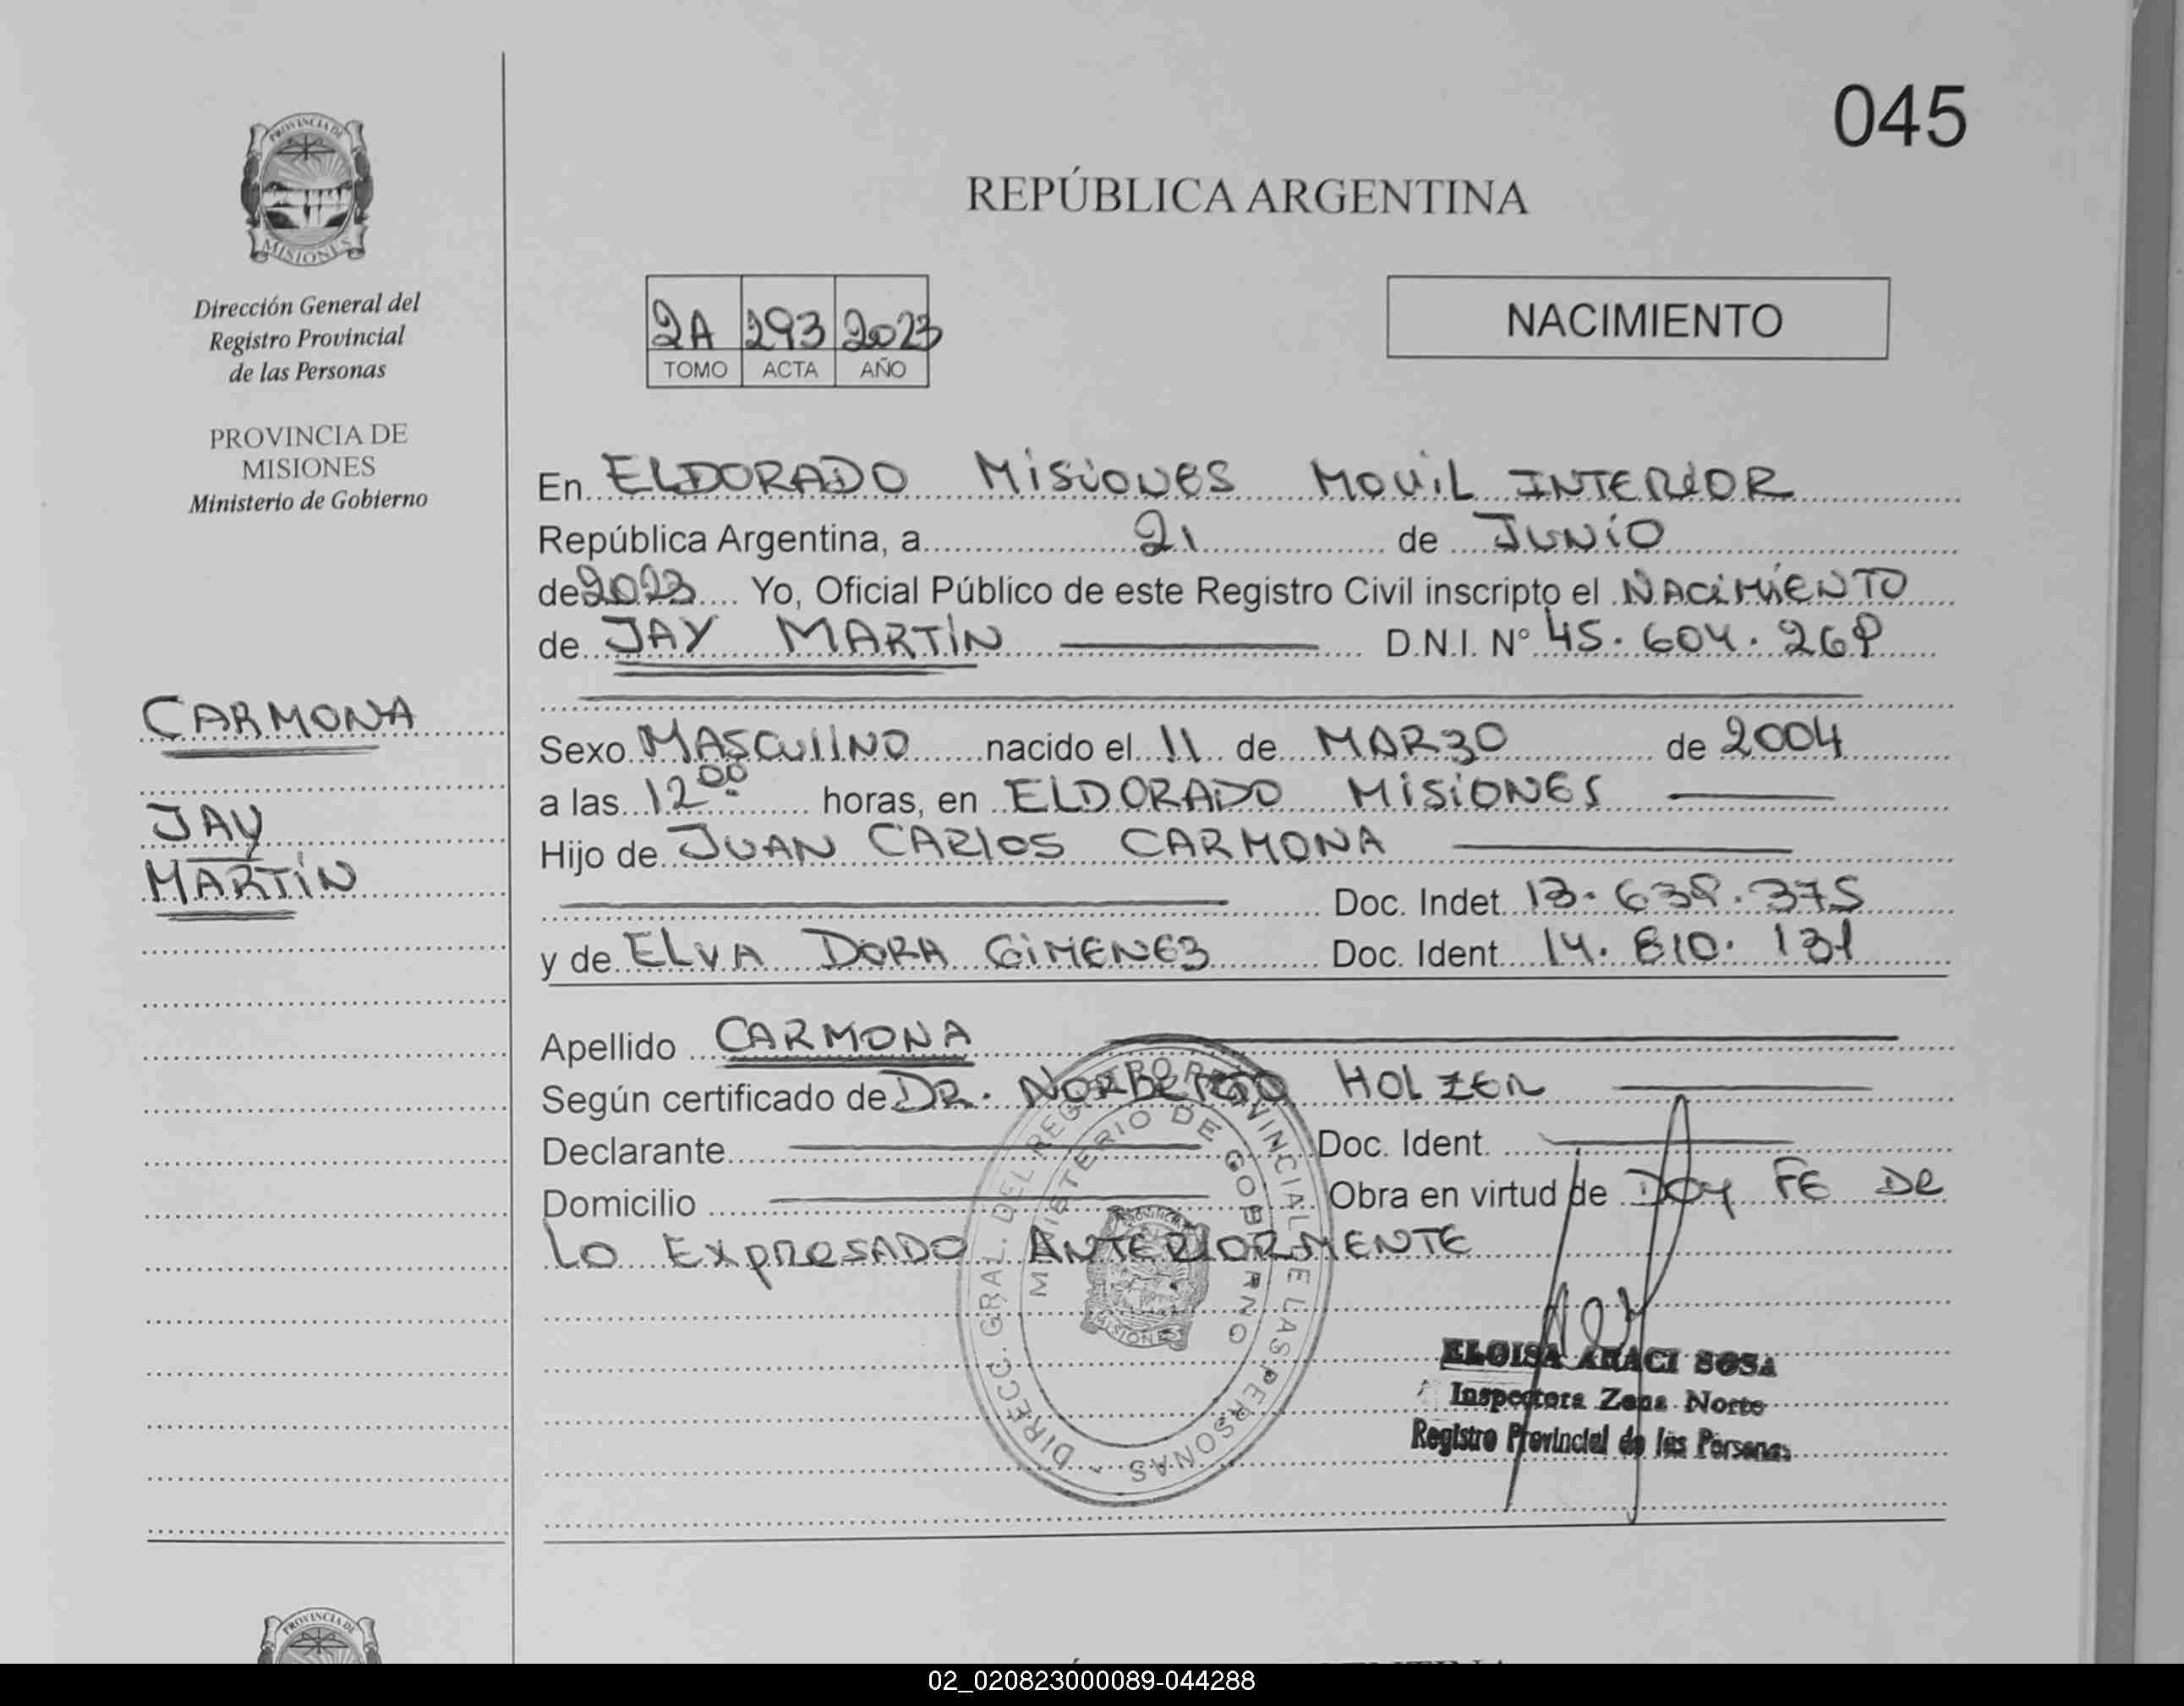 045
PROVINCIA DE
MISIONES
Dirección General del
Registro Provincial
de las Personas
PROVINCIA DE
MISIONES
Ministerio de Gobierno
CARMONA
JAY
MARTIN
REPÚBLICA ARGENTINA
2A 293 2023
TOMO ACTA AÑO
NACIMIENTO
En ELDORADO MISIONES MOVIL INTERIOR
República Argentina, a 21 de JUNIO
de 2023 Yo, Oficial Público de este Registro Civil inscripto el NACIMIENTO
de JAY MARTIN D.N.I. Nº 45.604.268
Sexo MASCULINO nacido el 11 de MARZO de 2004
a las 12 00 horas, en ELDORADO MISIONES
Hijo de JUAN CARLOS CARMONA
Doc. Indet. 13.638.375
y de ELVA DORA GIMENEZ Doc. Ident. 14.810.131
Apellido CARMONA
Según certificado de DR. NORBERTO HOLZER
Declarante Doc. Ident.
Domicilio Obra en virtud de DOY FE DE
LO EXPRESADO ANTERIORMENTE
DIRECC. GRAL. DEL REGISTRO PROVINCIAL DE LAS PERSONAS -
MINISTERIO DE GOBIERNO
PROVINCIA DE
MISIONES
ELOISA ARACI SOSA
Inspectora Zona Norte
Registro Provincial de las Personas
PROVINCIA DE
02_020823000089-044288